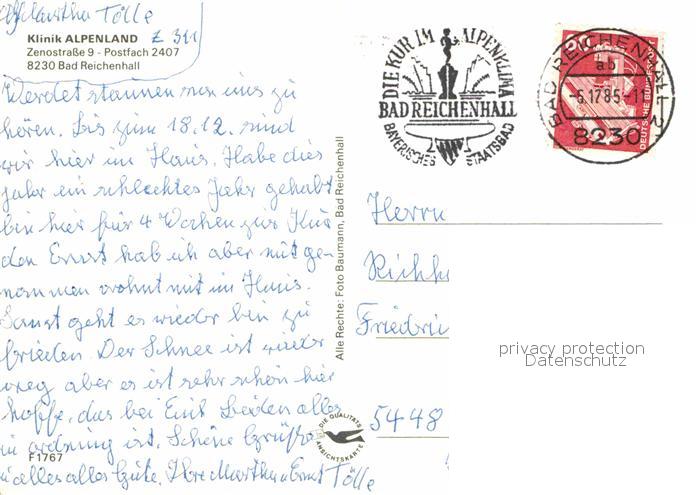 Martha Tölle
Klinik ALPENLAND Z 311
Zenostraße 9 - Postfach 2407
8230 Bad Reichenhall
Werdet staunen von uns zu
hören. Bis zum 18.12. sind
wir hier im Haus. Habe dies
Jahr ein schlechtes Jahr gehabt
bin hier für 4 Wochen zur Kur
den Ernst hab ich aber mit ge-
nommen wohnt mit im Haus.
Sonst geht es wieder bin zu
frieden. Der Schnee ist wieder
weg aber es ist sehr schön hier
hoffe, das bei Euch beiden alles
in ordnung ist. Schöne Grüße
u. alles alles Gute. Ihre Martha u Ernst Tölle
F1767
Alle Rechte: Foto Baumann, Bad Reichenhall
DIE QUALITÄTS
ANSICHTSKARTE
DIE KUR IM ALPENKLIMA
BAD REICHENHALL
BAYERISCHES STAATSBAD
BAD REICHENHALL 2
ab
-5.12.85-11
8230
DEUTSCHE BUNDESPOST
Herrn
Friedri
5448
privacy protection
Datenschutz